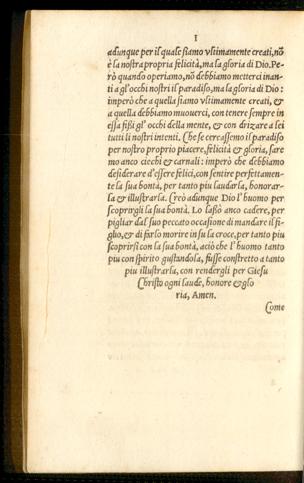 I
adunque per il quale siamo vltimamente creati, nõ
è la nostra propria felicità, ma la gloria di Dio. Pe-
rò quando operiamo, nõ debbiamo metterci inan-
ti a gl' occhi nostri il paradiso, ma la gloria di Dio:
imperò che a quella siamo vltimamente creati, &
a quella debbiamo muouerci, con tenere sempre in
essa fißi gl' occhi della mente, & con drizare a lei
tutti li nostri intenti. Che se cercassemo il paradiso
per nostro proprio piacere, felicità & gloria, sare
mo anco ciechi & carnali: imperò che debbiamo
desiderare d'essere felici, con sentire perfettamen-
te la sua bontà, per tanto piu laudarla, honorar-
la & illustrarla. Creò adunque Dio l'huomo per
scoprirgli la sua bontà. Lo lasciò anco cadere, per
pigliar dal suo peccato occasione di mandare il fi-
glio, & di farlo morire in su la croce, per tanto piu
scoprirsi con la sua bontà, aciò che l'huomo tanto
piu con spirito gustandola, fusse constretto a tanto
piu illustrarla, con rendergli per Giesu
Christo ogni laude, honore & glo
ria, Amen.
Come